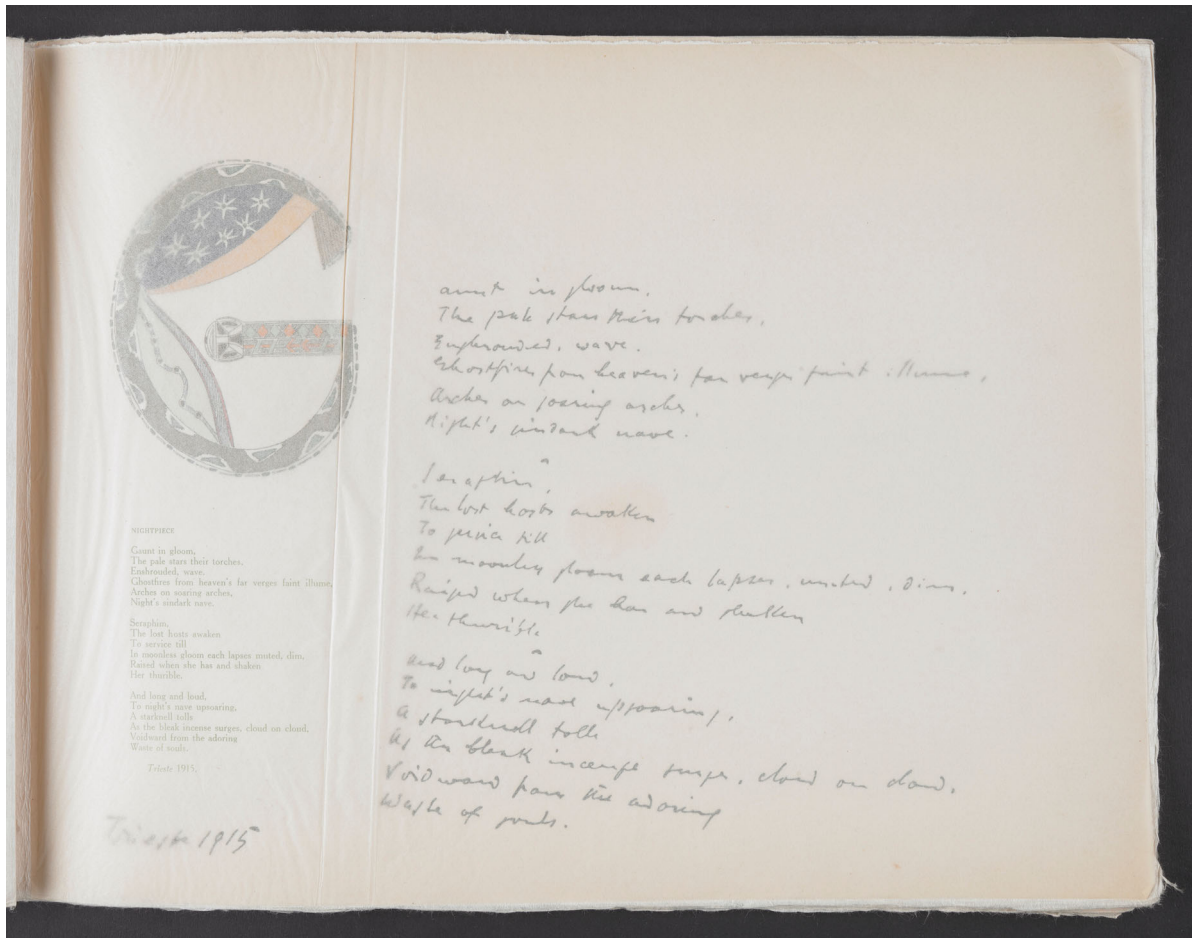 NIGHTPIECE
Gaunt in gloom,
The pale stars their torches,
Enshrouded, wave.
Ghostfires from heaven's far verges faint illume,
Arches on soaring arches,
Night's sindark nave.
Seraphim,
The lost hosts awaken
To service till
In moonless gloom each lapses muted, dim,
Raised when she has and shaken
Her thurible.
And long and loud,
To night's nave upsoaring,
A starknell tolls
As the bleak incense surges, cloud on cloud,
Voidward from the adoring
Waste of souls.
Trieste 1915.
Trieste 1915
aunt in gloom,
The pale stars their torches,
Enshrouded, wave.
Ghostfires from heaven's far verges faint illume,
Arches on soaring arches,
Night's sindark nave.
Seraphim,
The lost hosts awaken
To service till
In moonless gloom each lapses, muted, dim,
Raised when she has and shaken
Her thurible
And long and loud,
To night's nave upsoaring,
A starknell tolls
As the bleak incense surges, cloud on cloud,
Voidward from the adoring
Waste of souls.